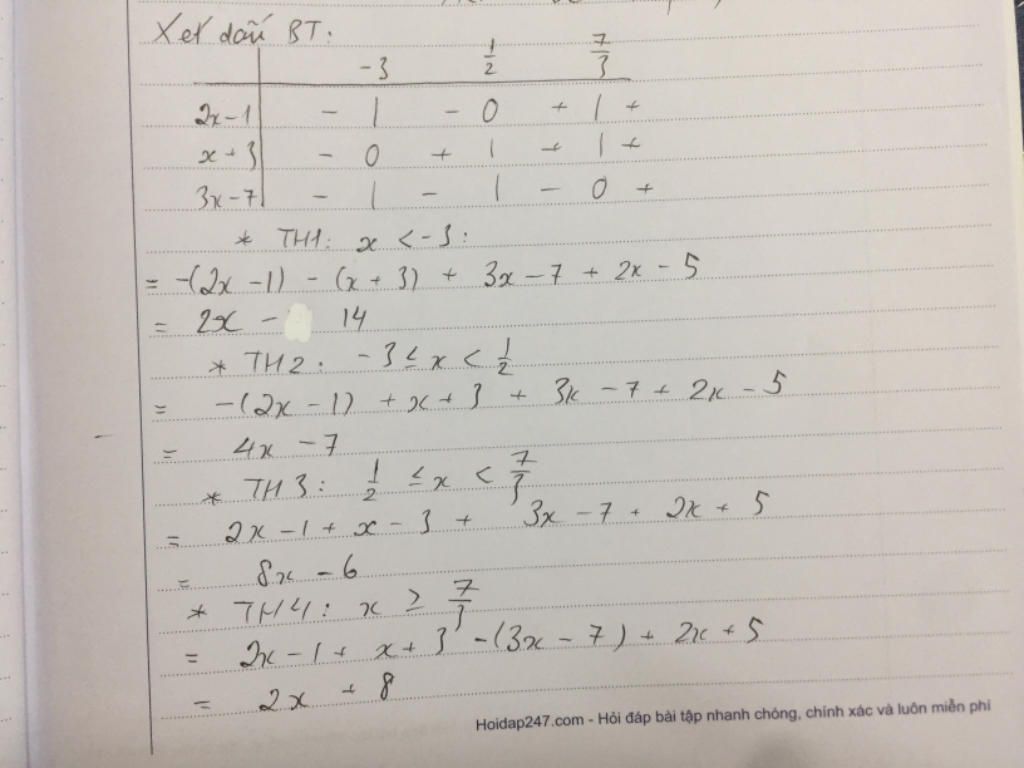 Xét dấu BT:
-3 1/2 7/3
2x-1 - | - 0 + | +
x+3 - 0 + | + | +
3x-7 - | - | - 0 +
* TH1: x < -3:
= -(2x-1) - (x+3) + 3x-7 + 2x-5
= 2x - 14
* TH2: -3 ≤ x < 1/2
= -(2x-1) + x+3 + 3x-7 + 2x-5
= 4x - 7
* TH3: 1/2 ≤ x < 7/3
= 2x-1 + x-3 + 3x-7 + 2x+5
= 8x - 6
* TH4: x ≥ 7/3
= 2x-1 + x+3 -(3x-7) + 2x+5
= 2x + 8
Hoidap247.com - Hỏi đáp bài tập nhanh chóng, chính xác và luôn miễn phí